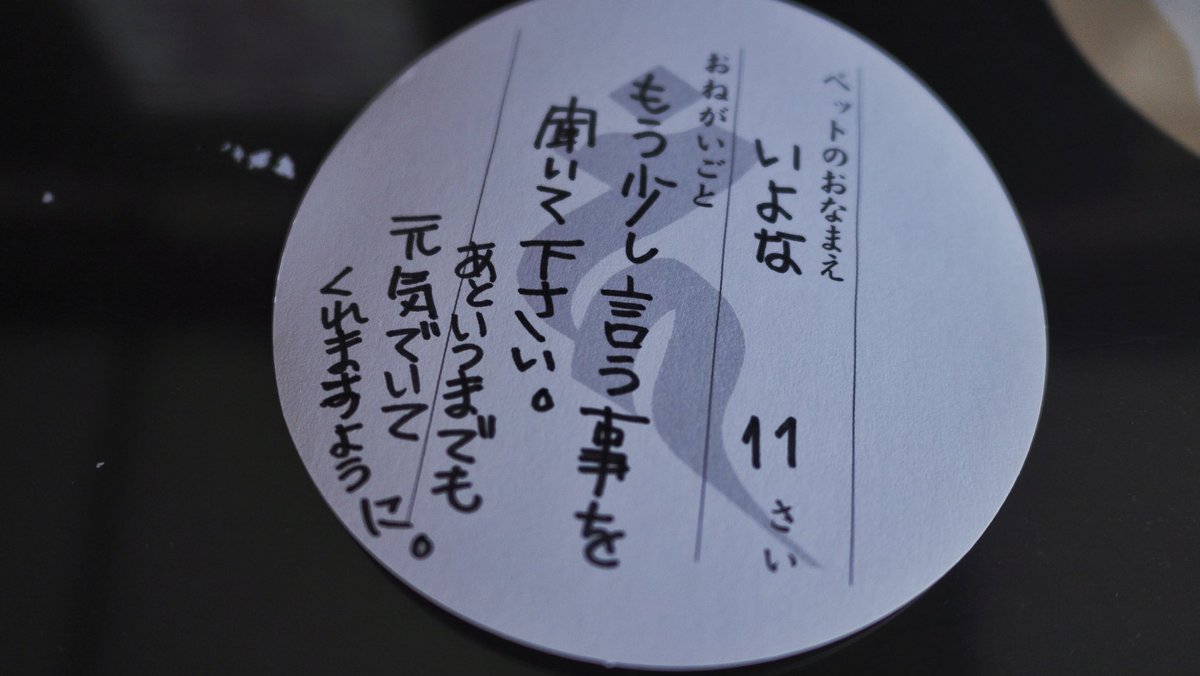 ペットのおなまえ
いよな 11 さい
おねがいごと
もう少し言う事を
聞いて下さい。
あといつまでも
元気でいて
くれますように。